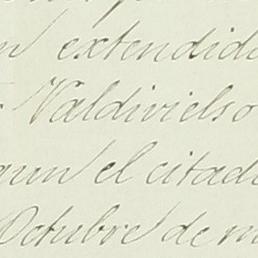 n extendido
Valdivielso
gun el citad
Octubre de m